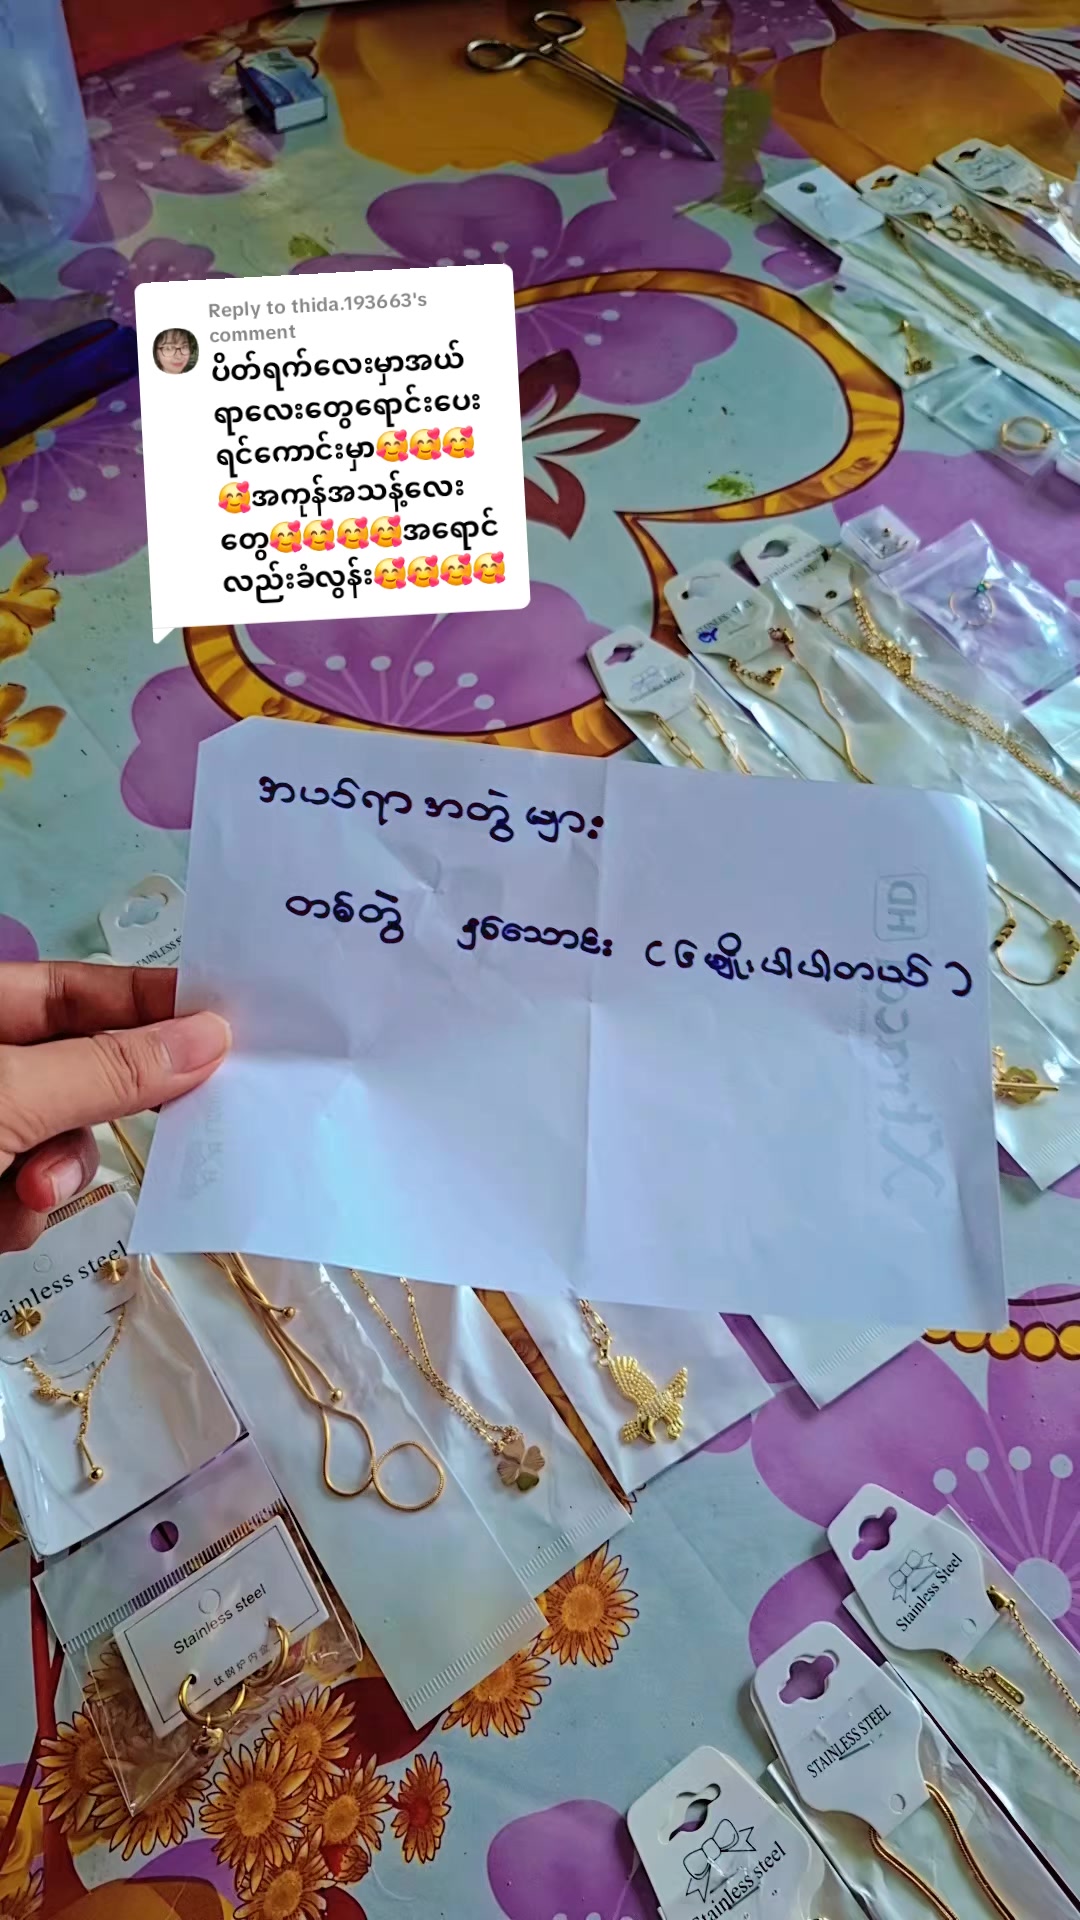 Reply to thida.193663's
comment
ပိတ်ရက်လေးမှာအယ်
ရာလေးတွေရောင်းပေး
ရင်ကောင်းမှာ🥰🥰🥰
🥰အကုန်အသန့်လေး
တွေ🥰🥰🥰🥰အရောင်
လည်းခံလွန်း🥰🥰🥰🥰
အပေါ်ရာ အတွဲ များ
တစ်တွဲ ၂၆သောင်း (၆ မျိုး ပါပါတယ်)
HD
Stainless Steel
ainless steel
Stainless steel
Stainless Steel
STAINLESS STEEL
tainless steel